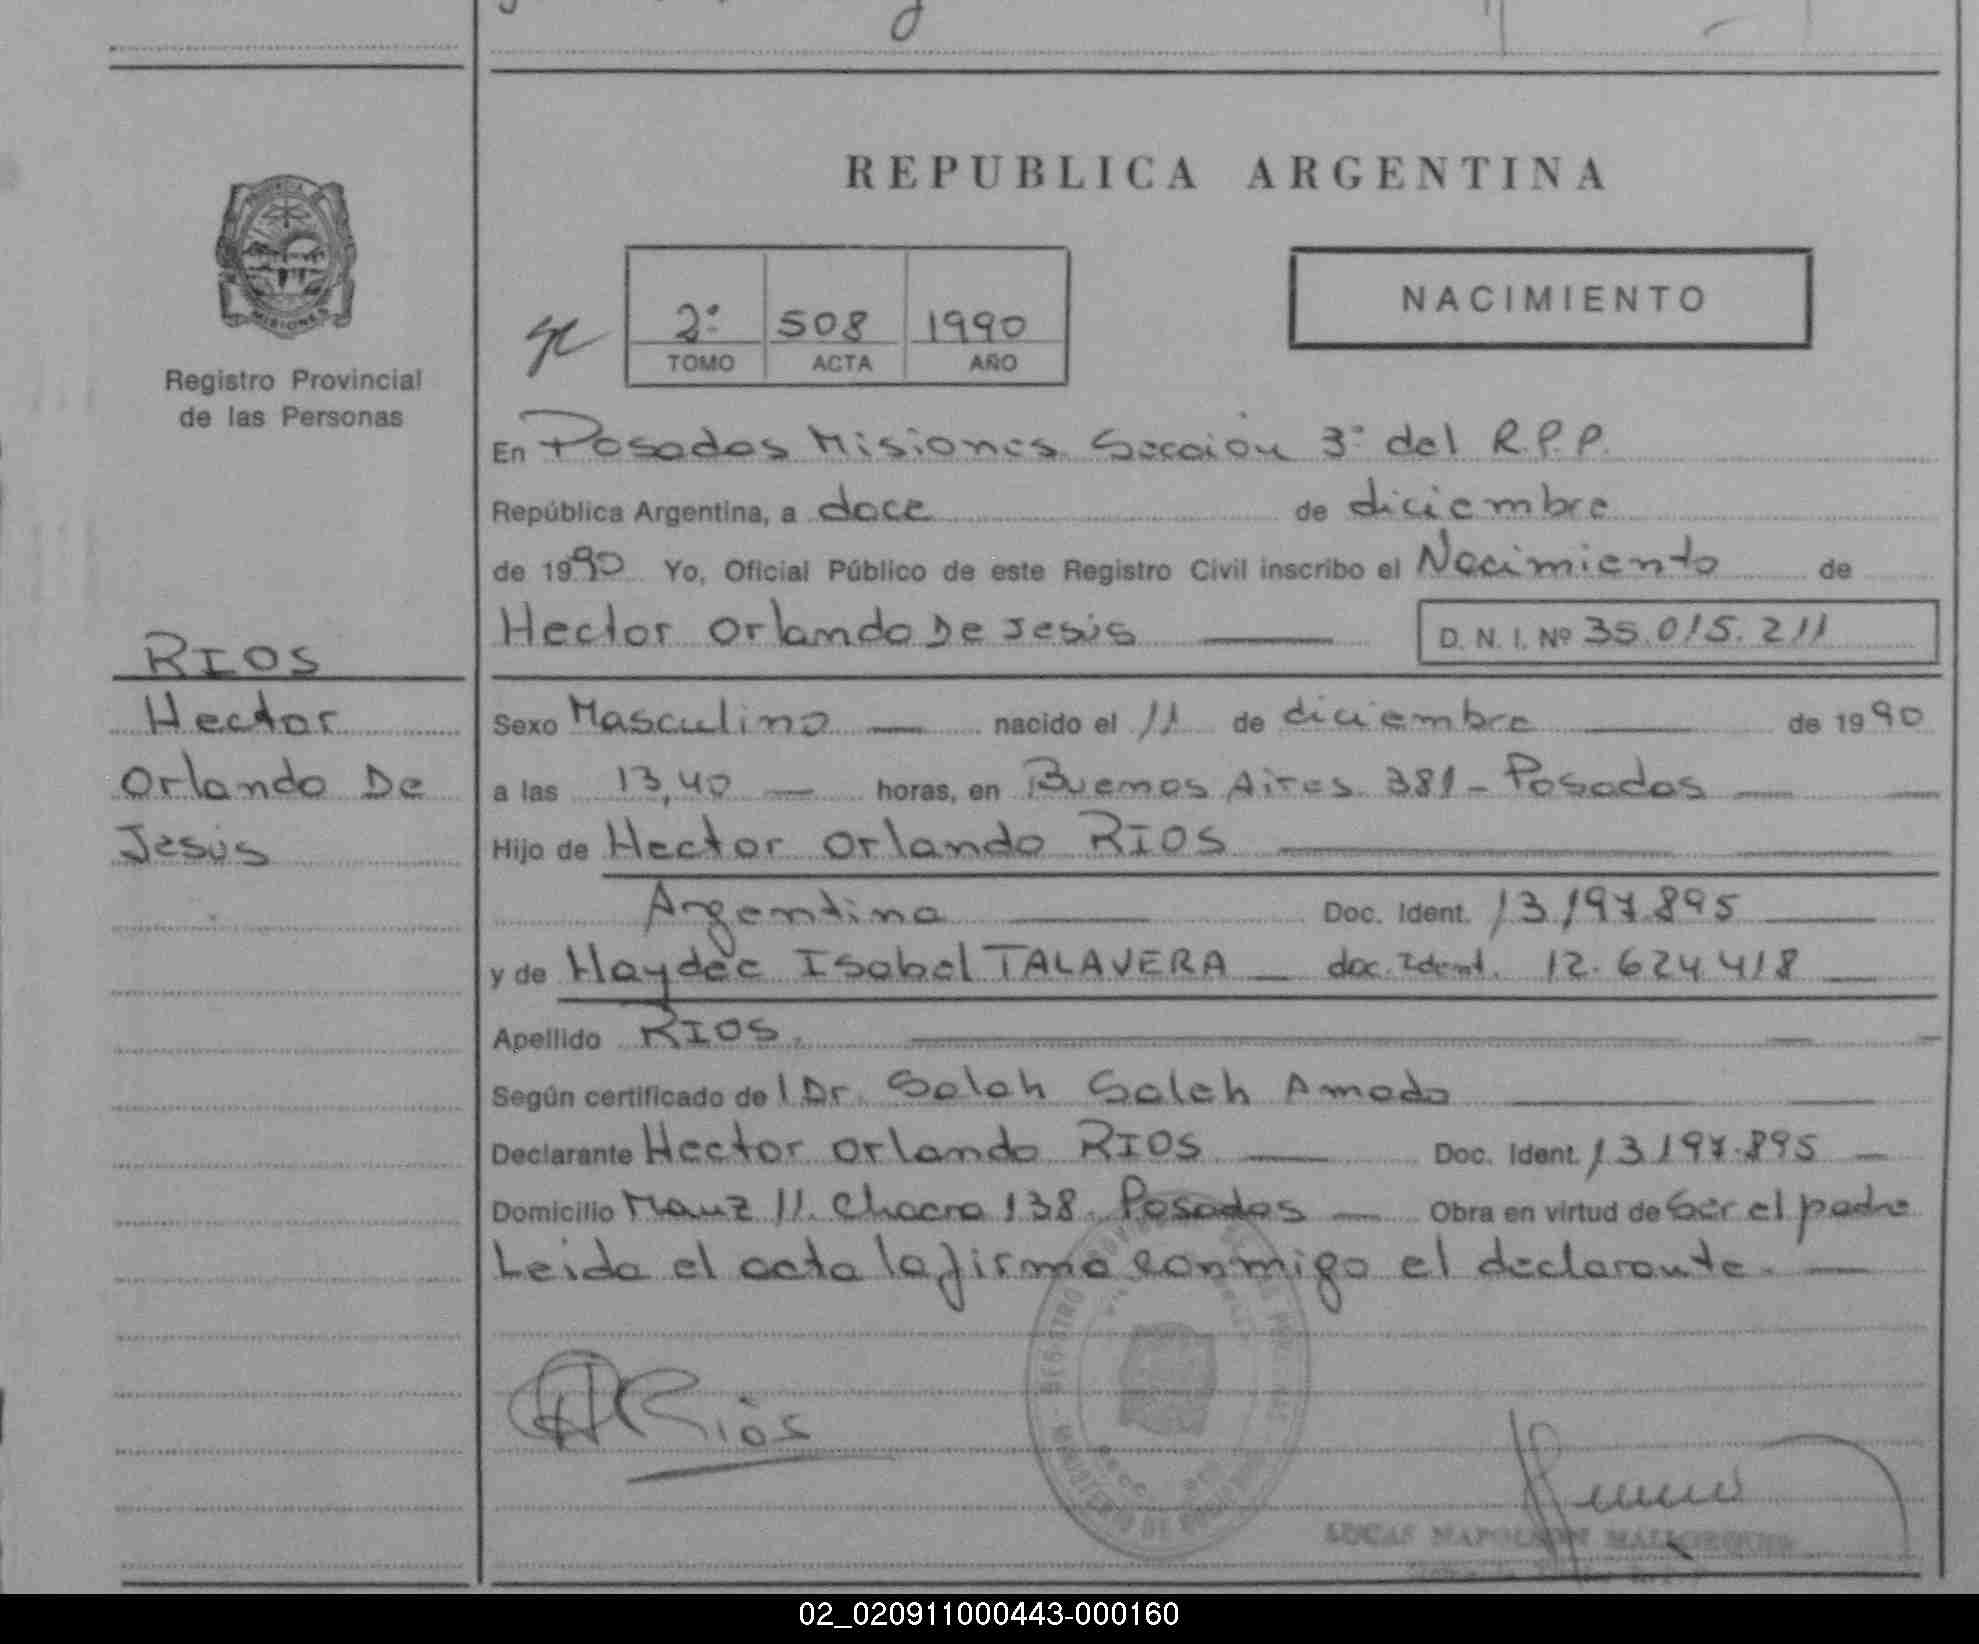 REPUBLICA ARGENTINA
2º 508 1990
TOMO ACTA AÑO
NACIMIENTO
Registro Provincial
de las Personas
En Posadas Misiones Sección 3º del R.P.P.
República Argentina, a doce de diciembre
de 1990 Yo, Oficial Público de este Registro Civil inscribo el Nacimiento de
Hector Orlando De Jesús D. N. I. Nº 35.015.211
RIOS
Hector
Orlando De
Jesús
Sexo Masculino nacido el 11 de diciembre de 1990
a las 13,40 horas, en Buenos Aires 381 - Posadas
Hijo de Hector Orlando RIOS
Argentino Doc. Ident. 13.197.895
y de Haydee Isabel TALAVERA doc. Ident. 12.624.418
Apellido RIOS.
Según certificado de l Dr. Saleh Saleh Amado
Declarante Hector Orlando RIOS Doc. Ident. 13.197.895
Domicilio Manz 11. Chacra 138. Posadas Obra en virtud de ser el padre
Leida el acta la firma conmigo el declarante.
Rios
LUCAS NAPOLEON
02_020911000443-000160